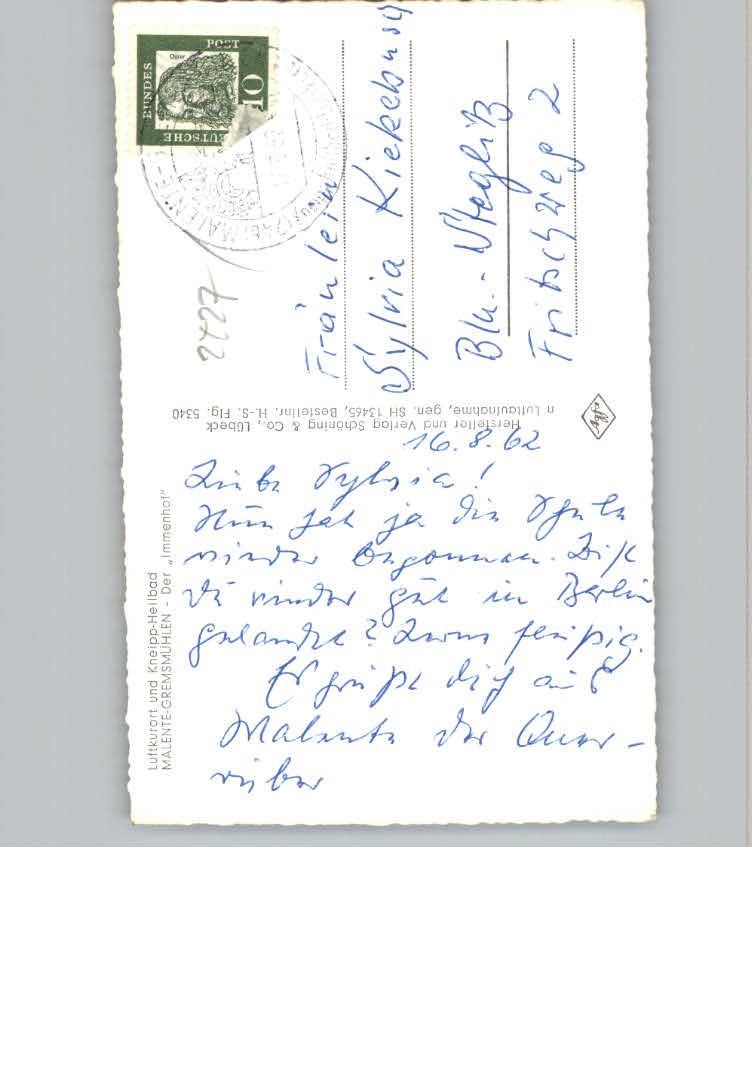 16.8.62
Liebe Sylvia!
Nun hat ja die Schule
wieder begonnen. Bist
Du wieder gut in Berlin
gelandet? Lerne fleißig.
Es grüßt dich aus
Malente der Quer-
Fräulein
Sylvia Kiekebusch
Bln.-Steglitz
Fritschweg 2
2427
Luftkurort und Kneipp-Heilbad
MALENTE-GREMSMÜHLEN - Der „Immenhof"
Hersteller und Verlag Schöning & Co., Lübeck
n Luftaufnahme, gen. SH 13465, Bestellnr. H.-S. Flg. 5340
DEUTSCHE
BUNDES
POST
10
MALENTE